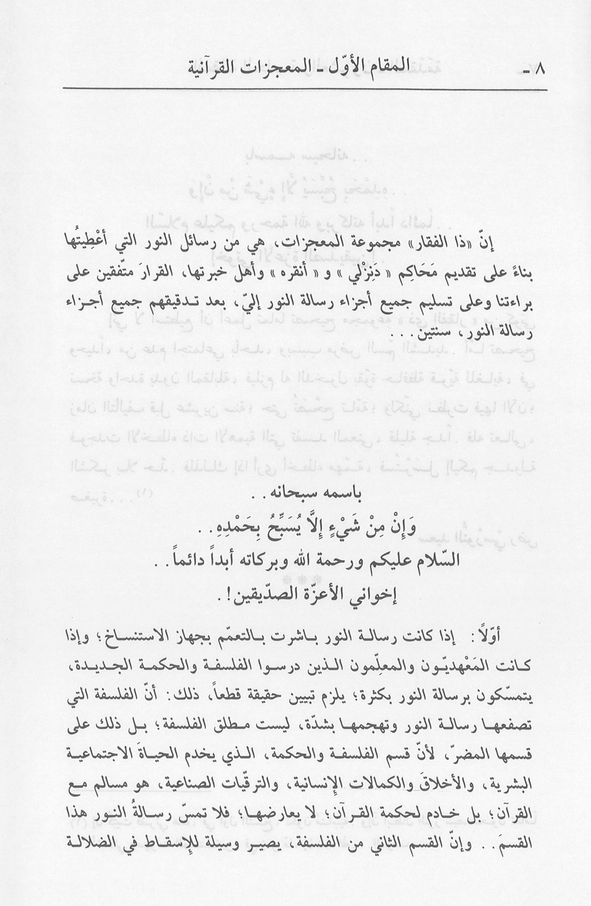 ٨ - المقام الأوّل - المعجزات القرآنية
إنّ «ذا الفقار» مجموعة المعجزات، هي من رسائل النور التي أعْطِيتُها
بناءً على تقديم مَحَاكِم «دَنِزْلي» و «أنقره» وأهل خبرتها، القرارَ متّفقين على
براءتنا وعلى تسليم جميع أجزاء رسالة النور إليّ، بعد تدقيقهم جميع أجـزاء
رسالة النور، سنتين...
باسمه سبحانه..
وَإِنْ مِنْ شَيْءٍ إِلَّا يُسَبِّحُ بِحَمْدِهِ..
السّلام عليكم ورحمة الله وبركاته أبداً دائماً..
إخواني الأعزّة الصدّيقين!.
أوّلاً: إذا كانت رسالة النور باشرت بالتعمّم بجهاز الاستنساخ؛ وإذا
كانت المَعْهديّون والمعلّمون الذين درسوا الفلسفة والحكمة الجديدة،
يتمسّكون برسالة النور بكثرة؛ يلزم تبيين حقيقة قطعاً، ذلك: أنّ الفلسفة التي
تصفعها رسالة النور وتهجمها بشدّة، ليست مطلق الفلسفة؛ بل ذلك على
قسمها المضرّ، لأنّ قسم الفلسفة والحكمة، الذي يخدم الحياةَ الاجتماعية
البشرية، والأخلاقَ والكمالات الإنسانية، والترقّيات الصناعية، هو مسالم مع
القرآن؛ بل خادم لحكمة القرآن؛ لا يعارضها؛ فلا تمسّ رسالةُ النور هذا
القسمَ.. وإنّ القسم الثاني من الفلسفة، يصير وسيلة للإسقاط في الضلالة